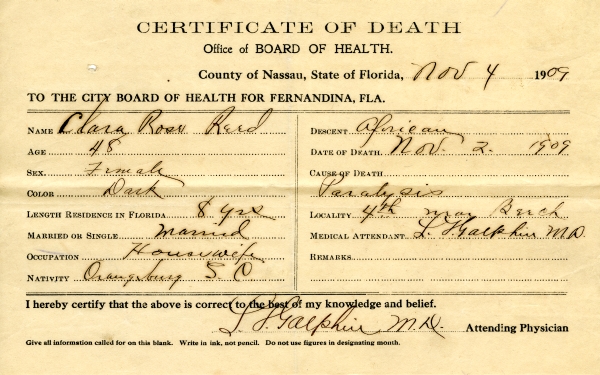 CERTIFICATE OF DEATH
Office of BOARD OF HEALTH.
County of Nassau, State of Florida, Nov 4 1909
TO THE CITY BOARD OF HEALTH FOR FERNANDINA, FLA.
NAME Clara Rose Reed
AGE 48
SEX. Female
COLOR Dark
LENGTH RESIDENCE IN FLORIDA 8 yrs
MARRIED OR SINGLE Married
OCCUPATION Housewife
NATIVITY Orangeburg S. C
DESCENT African
DATE OF DEATH. Nov. 2. 1909
CAUSE OF DEATH
Paralysis
LOCALITY 4th near Beech
MEDICAL ATTENDANT. L. F. Galphin M.D.
REMARKS
I hereby certify that the above is correct to the best of my knowledge and belief.
L. F. Galphin M.D. Attending Physician
Give all information called for on this blank. Write in ink, not pencil. Do not use figures in designating month.